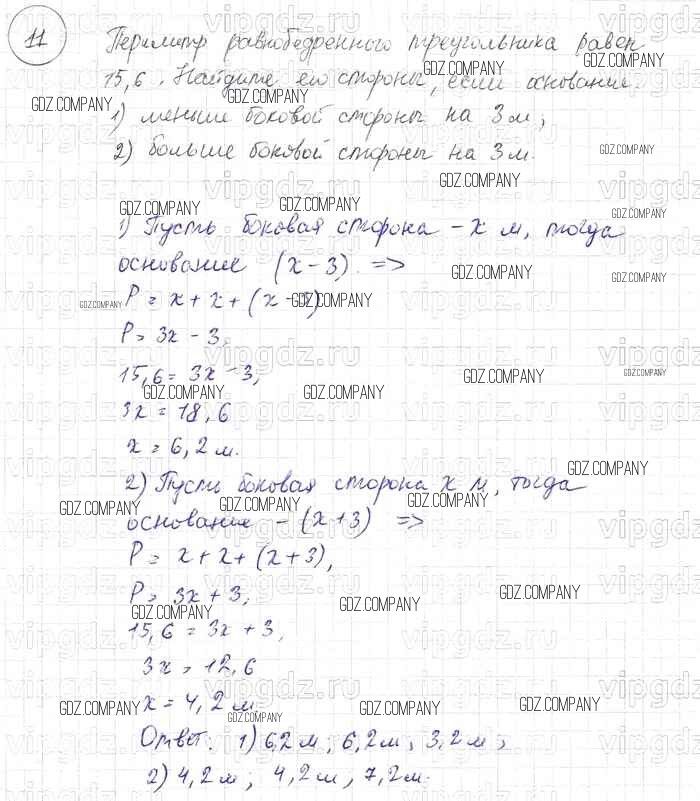 11
Периметр равнобедренного треугольника равен
15,6. Найдите его стороны, если основание:
1) меньше боковой стороны на 3 м;
2) больше боковой стороны на 3 м.
1) Пусть боковая сторона – x м, тогда
основание (x – 3). =>
P = x + x + (x – 3)
P = 3x – 3,
15,6 = 3x – 3,
3x = 18,6
x = 6,2 м.
2) Пусть боковая сторона x м, тогда
основание – (x + 3) =>
P = x + x + (x + 3),
P = 3x + 3,
15,6 = 3x + 3,
3x = 12,6
x = 4,2 м
Ответ: 1) 6,2 м; 6,2 м; 3,2 м;
2) 4,2 м; 4,2 м; 7,2 м.
GDZ.COMPANY
vipgdz.ru